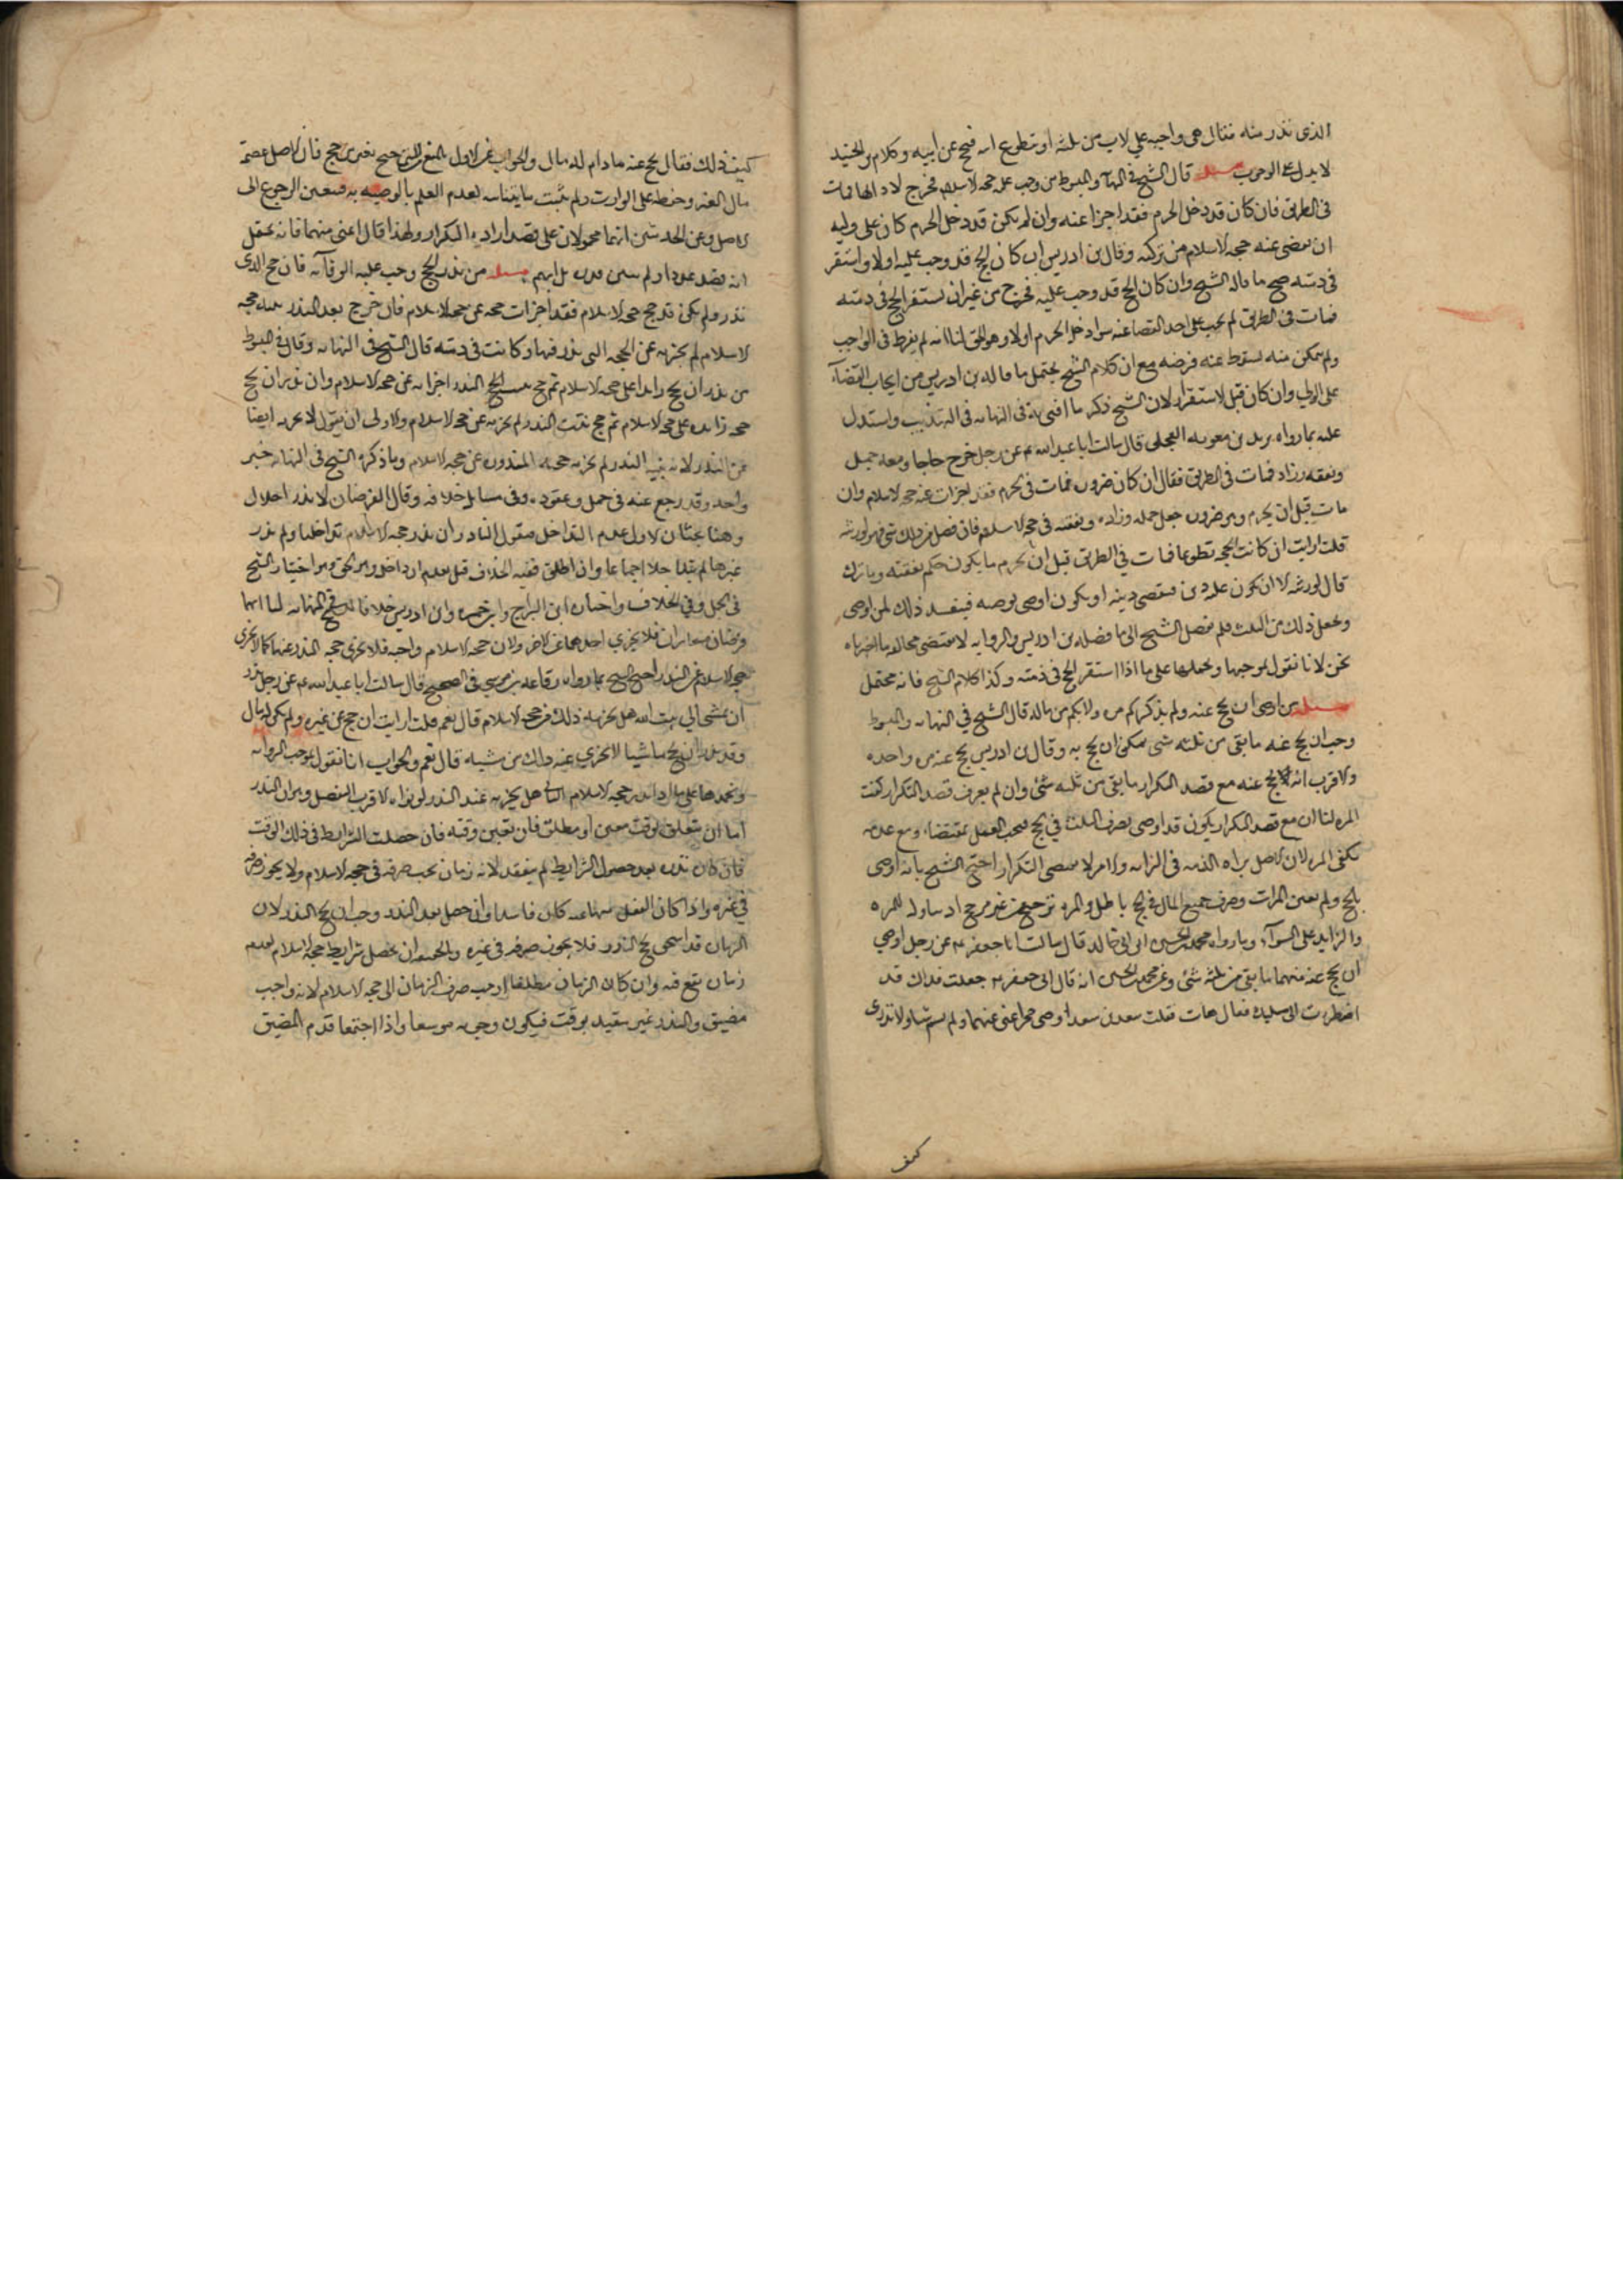 الذى نذر منه فقال هى واجبه على الاب من ثلثه او يتطوع ابنه فيحج عن ابيه وكلام ابن الجنيد
لا يدل على الوجوب مسئله قال الشيخ فى النهايه والمبسوط من وجب عليه حجه الاسلام فخرج لادائها فمات
فى الطريق فان كان قد دخل الحرم فقد اجزا عنه وان لم يكن قد دخل الحرم كان على وليه
ان يقضى عنه حجه الاسلام من تركته وقال ابن ادريس ان كان الحج قد وجب عليه اولا واستقر
فى ذمته صح ما قاله الشيخ وان كان الحج قد وجب عليه فخرج من غير ان يستقر الحج فى ذمته
فمات فى الطريق لم يجب على احد القضا عنه سوا دخل الحرم اولا وهو الحق لنا انه لم يفرط فى الواجب
ولم يتمكن منه فسقط عنه فرضه مع ان كلام الشيخ يحتمل ما قاله ابن ادريس من ايجاب القضآء
على الولي وان كان قبل الاستقرار لان الشيخ ذكر ما افتى به فى النهايه فى التهذيب واستدل
عليه بما رواه بريد بن معويه العجلى قال سالت ابا عبد الله عم عن رجل خرج حاجا ومعه جمل
ونفقه وزاد فمات فى الطريق فقال ان كان صروره فمات فى الحرم فقد اجزات عنه حجه الاسلام وان
مات قبل ان يحرم وهو صروره جعل جمله وزاده ونفقته فى حجه الاسلام فان فضل من ذلك شى فهو لورثته
قلت ارايت ان كانت الحجه تطوعا فمات فى الطريق قبل ان يحرم لمن يكون جمله ونفقته وما ترك
قال لورثته الا ان يكون عليه دين فيقضى دينه او يكون اوصى بوصيه فينفذ ذلك لمن اوصى
ويجعل ذلك من الثلث فلم يفصل الشيخ الى ما فصله ابن ادريس والروايه لا تقتضى مخالفه ما اخترناه
نحن لانا نقول بموجبها ونحملها على ما اذا استقر الحج فى ذمته وكذا كلام الشيخ فانه محتمل
مسئله من اوصى ان يحج عنه ولم يذكر كم مره ولا بكم من ماله قال الشيخ فى النهايه والمبسوط
وجب ان يحج عنه ما بقى من ثلثه شى يمكن ان يحج به وقال ابن ادريس يحج عنه مره واحده
والاقرب انه يحج عنه مع قصد التكرار ما بقى من ثلثه شئ وان لم يعرف قصد التكرار كفت
المره لنا ان مع قصد التكرار يكون قد اوصى بصرف الثلث فى الحج فيجب العمل بمقتضاه ومع عدمه
يكفى المره لان الاصل براه الذمه فى الزايد والامر لا يقتضى التكرار احتج الشيخ بانه اوصى
بالحج ولم يعين المرات وصرف جميع المال فى الحج باطل والمره ترجيح من غير مرجح اذ تناوله للمره
والزايد على السوآء وبما رواه محمد بن الحسين ابن ابى خالد قال سالت ابا جعفر عم عن رجل اوصي
ان يحج عنه مبهما ما بقى من ثلثه شئ وعن محمد بن الحسن انه قال لابى جعفر عم جعلت فداك قد
اضطررت الى مسئلتك فقال هات فقلت سعد بن سعد اوصى حجوا عنى مبهما ولم يسم شيا ولا ندرى
كيف
كيف ذلك فقال يحج عنه ما دام له مال والجواب عن الاول المنع فان الاصل عصمة
مال الغير وحفظه على الوارث ولم يثبت ما ينافيه لعدم العلم بالوصيه به فيتعين الرجوع الى
الاصل وعن الحديثين انهما محمولان على قصد اراده التكرار ولهذا قال اعنى مبهما فانه يحتمل
انه قصد عددا ولم يبين قدره بل ابهم مسئله من نذر الحج وجب عليه الوفآء به فان حج الذى
نذر ولم يكن قد حج حجه الاسلام فقد اجزات حجته عن حجه الاسلام فان خرج بعد النذر بنيه حجه
الاسلام لم يجزيه عن الحجه التى نذرها وكانت فى ذمته قال الشيخ فى النهايه وقال فى المبسوط
من نذر ان يحج زايدا على حجه الاسلام ثم حج بنيه النذر اجزاته عن حجه الاسلام وان نذر ان يحج
حجه زايده على حجه الاسلام ثم حج بنيه النذر لم يجزيه عن حجه الاسلام والاولى ان نقول لا يجزيه ايضا
عن النذر لانه بنيه النذر لم يجزيه حجه المنذوره عن حجه الاسلام وما ذكره الشيخ فى النهايه خبر
واحد وقد رجع عنه فى جمله وعقوده وفى مسايل خلافه وقال الفرضان لا
وهنا بحثان الاول عدم التداخل فنقول الناذر ان نذر حجه الاسلام تداخلتا ولو نذر
غيرها لم يتداخلا اجماعا وان اطلق ففيه الخلاف قيل بعدم التداخل وهو الحق وهو اختيار الشيخ
فى الجمل وفى الخلاف واختاره ابن البراج وابن حمزه وابن ادريس خلافا للشيخ فى النهايه لنا انهما
فرضان متغايران فلا يجزي احدهما عن الاخر ولان حجه الاسلام واجبه فلا تجزى حجه النذر عنها كما لا تجزى
حجه الاسلام عن النذر احتج الشيخ بما رواه رفاعه بن موسى فى الصحيح قال سالت ابا عبد الله عم عن رجل نذر
ان يمشى الى بيت الله هل يجزيه ذلك من حجه الاسلام قال نعم قلت ارايت ان حج عن غيره ولم يكن له مال
وقد نذر ان يحج ماشيا الايجزي عنه ذلك من مشيه قال نعم والجواب انا نقول بموجب الروايه
ونحملها على ما اذا نذر حجه الاسلام الثانى هل يجزيه عند النذر لو نواه الاقرب التفصيل وهو ان النذر
اما ان يتعلق بوقت معين او مطلق فان تعين وقته فان حصلت الشرايط فى ذلك الوقت
فان كان نذره بعد حصول الشرايط لم ينعقد لانه زمان يجب صرفه فى حجه الاسلام ولا يجوز صرفه
فى غيره واذا كان الفعل منهيا عنه كان فاسدا وان حصل بعد النذر وجب ان يحج النذر لان
الزمان قد استحق لحج النذر فلا يجوز صرفه فى غيره ولا يحصل شرايط حجه الاسلام لعدم
زمان يقع فيه وان كان الزمان مطلقا وجب صرف الزمان الى حجه الاسلام لانه واجب
مضيق والنذر غير مقيد بوقت فيكون وجوبه موسعا واذا اجتمعا قدم المضيق